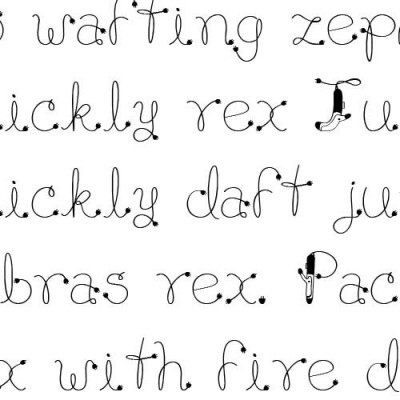 wafting zep
ickly rex Ju
ickly daft ju
bras rex. Pac
x with fire d